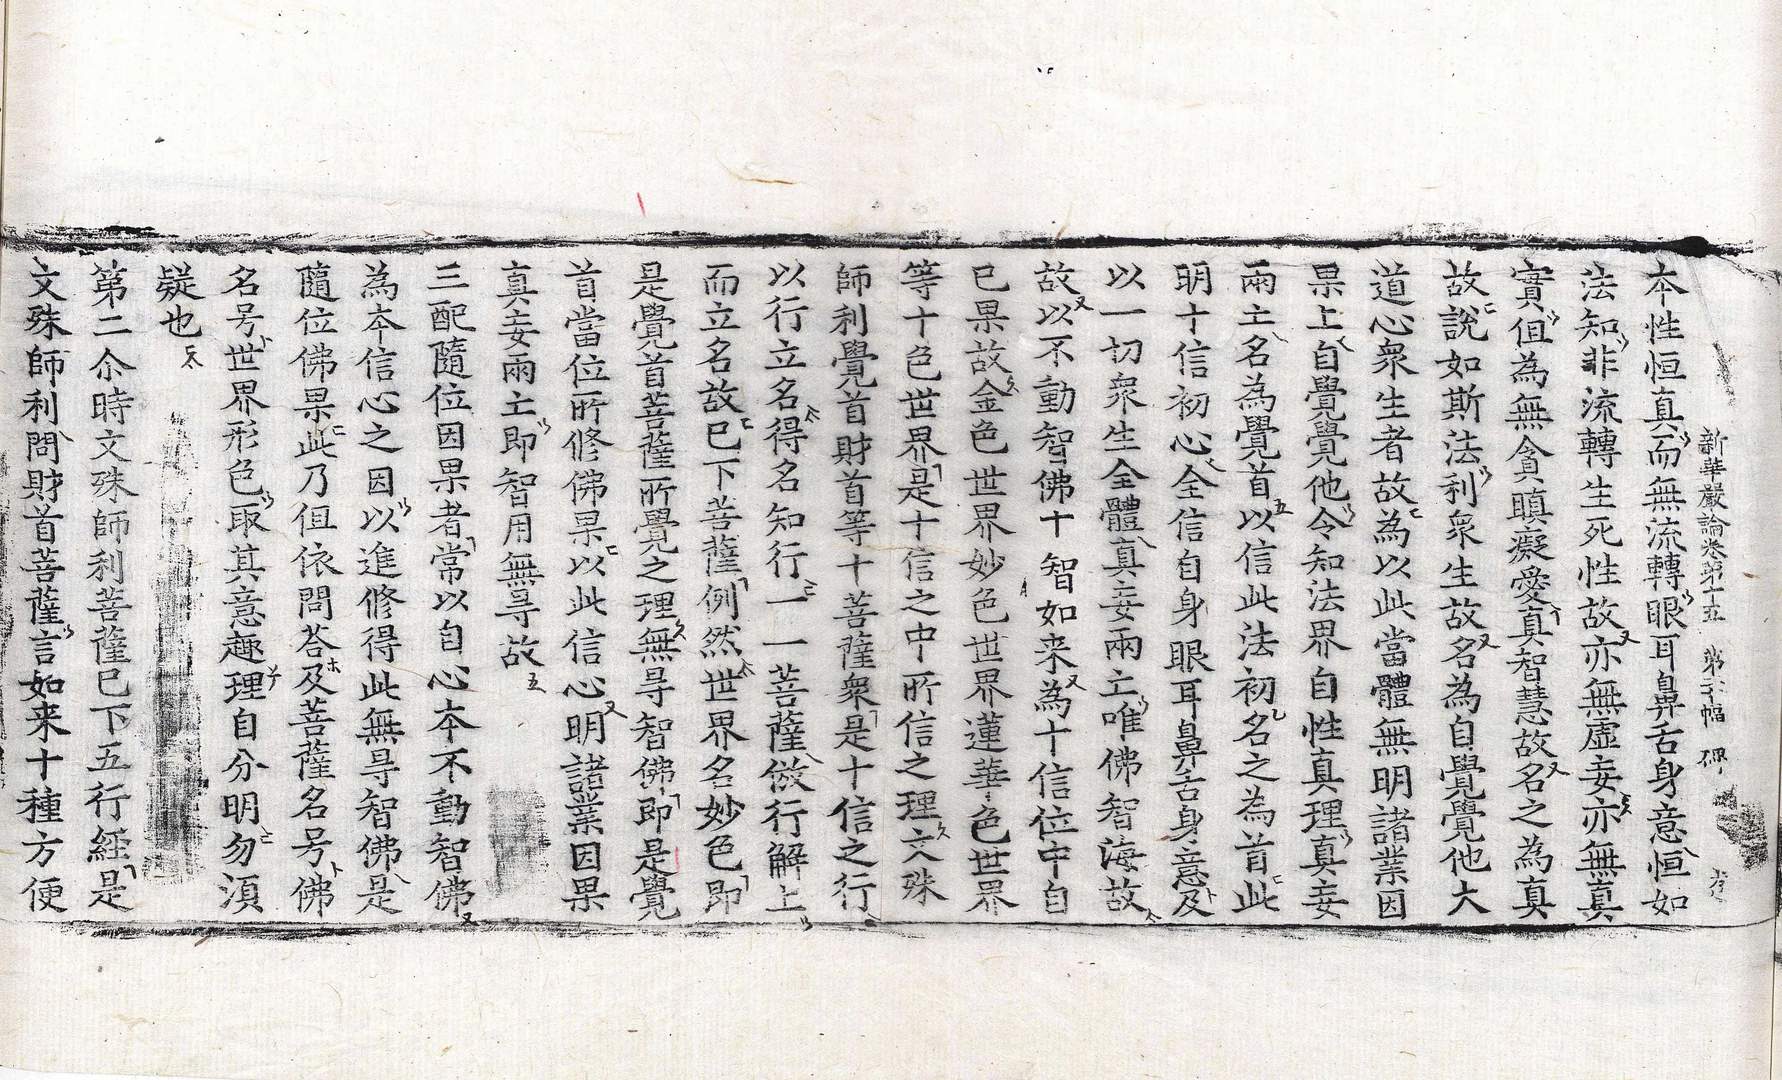 新華嚴論卷第十五 第二十幅 碑
本性恒真而無流轉眼耳鼻舌身意恒如
法知非流轉生死性故亦無虛妄亦無真
實但為無貪瞋癡愛真智慧故名之為真
故說如斯法利衆生故名為自覺覺他大
道心衆生者故為以此當體無明諸業因
果上自覺覺他令知法界自性真理真妄
兩亡名為覺首以信此法初名之為首此
明十信初心全信自身眼耳鼻舌身意及
以一切衆生全體真妄兩亡唯佛智海故
故以不動智佛十智如来為十信位中自
已果故金色世界妙色世界蓮華色世界
等十色世界是十信之中所信之理文殊
師利覺首財首等十菩薩衆是十信之行
以行立名得名知行一一菩薩倣行解上
而立名故已下菩薩例然世界名妙色即
是覺首菩薩所覺之理無㝵智佛即是覺
首當位所修佛果以此信心明諸業因果
真妄兩亡即智用無㝵故
三配隨位因果者常以自心本不動智佛
為本信心之因以進修得此無㝵智佛是
隨位佛果此乃但依問荅及菩薩名号佛
名号世界形色取其意趣理自分明勿湏
疑也
第二尒時文殊師利菩薩已下五行經是
文殊師利問財首菩薩言如来十種方便